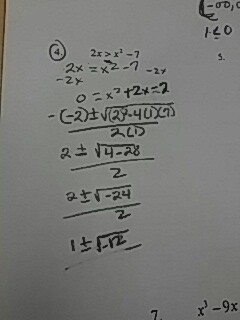 (-∞,0
1≤0
5.
4. 2x > x² - 7
2x = x² - 7 -2x
-2x
0 = x² + 2x = 7
-(-2) ± √(2)²-4(1)(7)
2(1)
2 ± √4-28
2
2 ± √-24
2
1 ± √-12
7. x³ - 9x